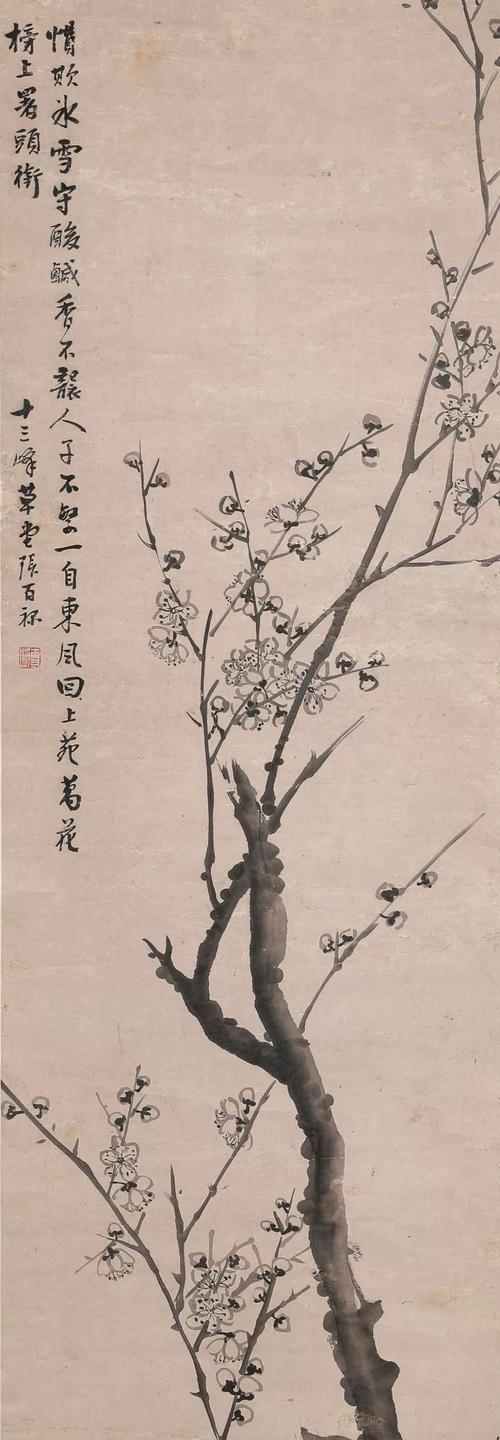 慣欺冰雪守酸鹹香不襲人子不一自東風回上苑萬花
榜上署頭銜
十三峰草堂張百祿